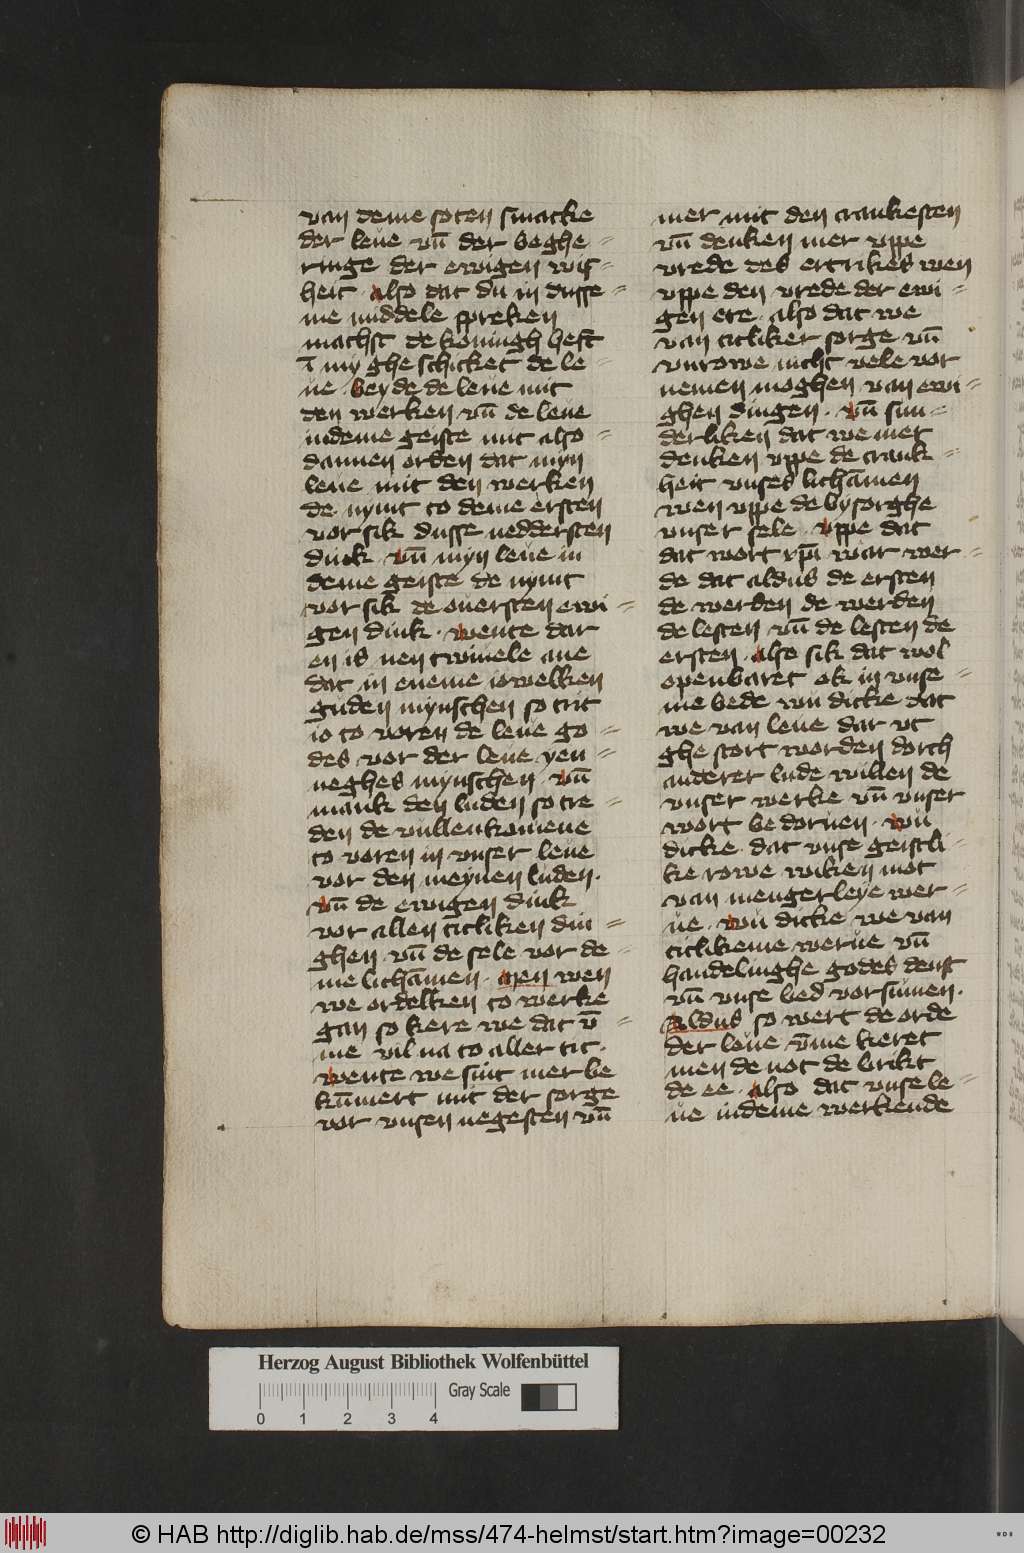 van deme soten smacke
der leue vn̄ der beghe=
ringe der ewigen wis=
heit · also dat du in dusse=
me middele spreken
machst de koningh heft
ī my ghe schicket de le=
ue · beyde de leue mit
den werken vn̄ de leue
indeme geiste mit also=
dannen orden dat myn
leue mit den werken
de nymt to deme ersten
vor sik dusse neddersten
dink · vn̄ myn leue in
deme geiste de nymt
vor sik de ouersten ewi=
gen dink · wente dar
en is nen twiuele ane
dat in eneme iowelken
guden mynschen so trit
io to voren de leue go=
des vor der leue yen=
neghes mynschen · vn̄
mank den luden so tre=
den de vullenkomene
to voren in vnser leue
vor den meynen luden ·
vn̄ de ewigen dink
vor allen titliken din=
ghen · vn̄ de sele vor de=
me lichāmen · Men wen
we ordelken to werke
gan so kere we dat v̄=
me vil na to aller tit ·
wente we sint mer be
kūmert mit der sorge
vor vnsen negesten vn̄
mer mit den crankesten
vn̄ denken mer vppe
vrede des ertrikes wen
vppe den vrede der ewi=
gen ere · also dat we
van titliker sorge vn̄
vnrowe nicht vele vor
nemen moghen van ewi=
ghen dingen · vn̄ sun=
derliken dat we mer
denken vppe de crank=
heit vnses lichāmen
wen vppe de bysorghe
vnser sele · vppe dat
dat wort xp̄i war wer=
de dat aldus de ersten
de werden de werden
de lesten vn̄ de lesten de
ersten · also sik dat wol
openbaret ok in vnse=
me bede wu dicke dat
we van leue dar vt
ghe stort worden dorch
anderer lude willen de
vnser werke vn̄ vnser
wort bedoruen · wu
dicke · dat vnse geistli=
ke rowe wiken mot
van mengerleye wer=
ue · wu dicke we van
titlikeme werue vn̄
handelinghe godes denst
vn̄ vnse bed vorsumen ·
Aldus so wert de orde
der leue v̄me keret
men de not de brikt
de ee · also dat vnse le=
ue indeme werkende
Herzog August Bibliothek Wolfenbüttel
0 1 2 3 4
Gray Scale
© HAB http://diglib.hab.de/mss/474-helmst/start.htm?image=00232